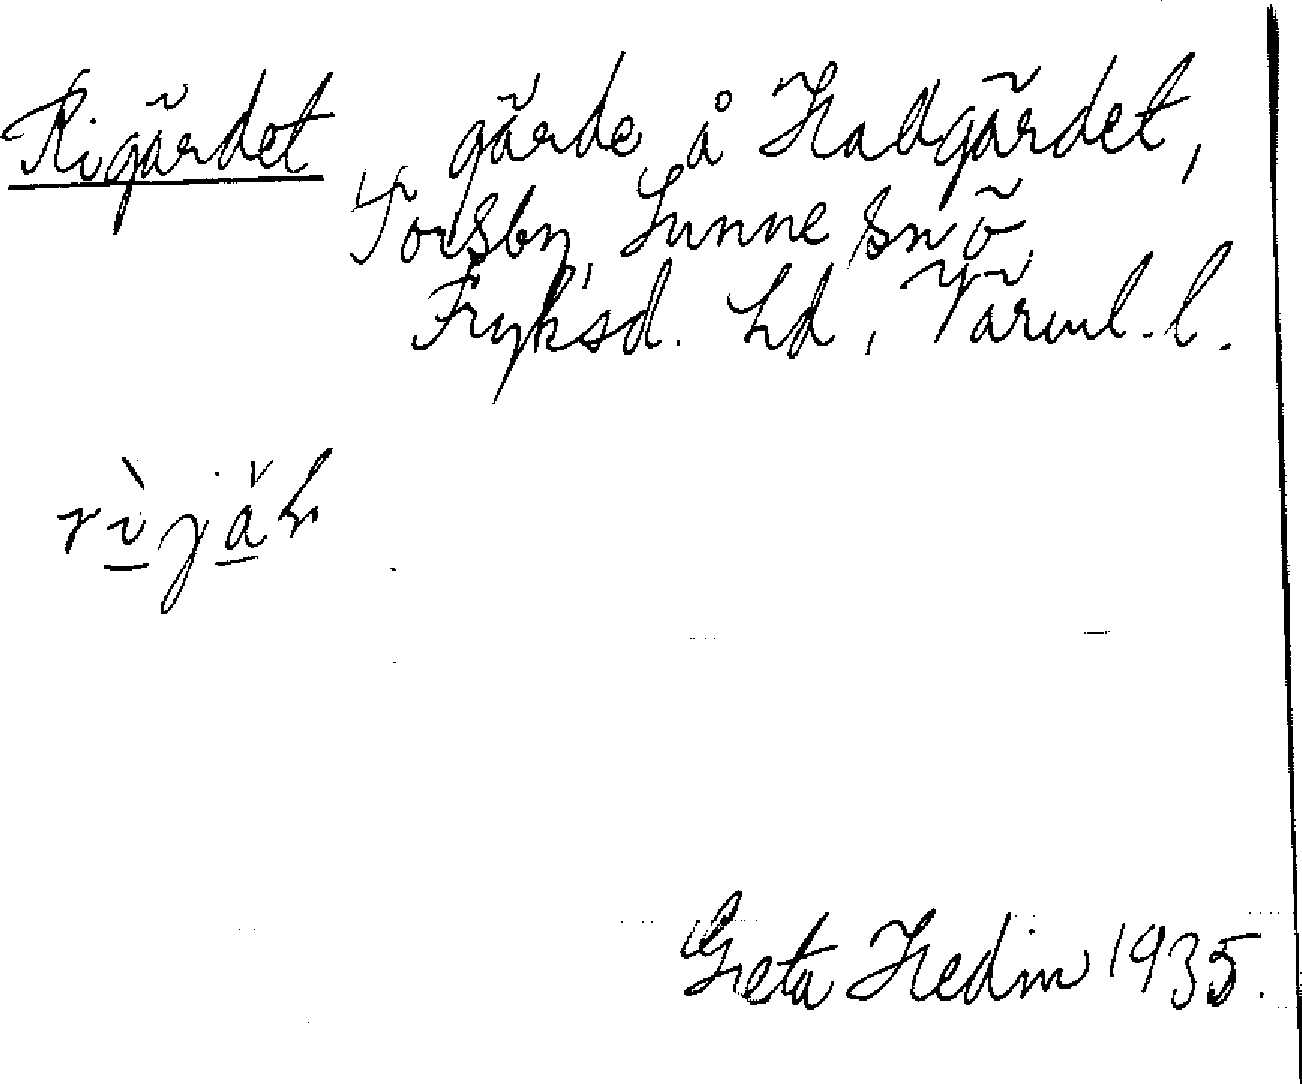 Rigärdet gärde å Hallgärdet,
Torsby, Sunne sn ö
Fryksd. hd, Värml. l.
rìjäṇ
Greta Hedin 1935.